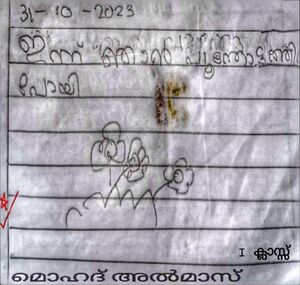 31-10-2023
ഇന്ന് ഞാൻ പൂന്തോട്ടത്തിൽ
പോയി
I ക്ലാസ്സ്
മൊഹദ് അൽമാസ്